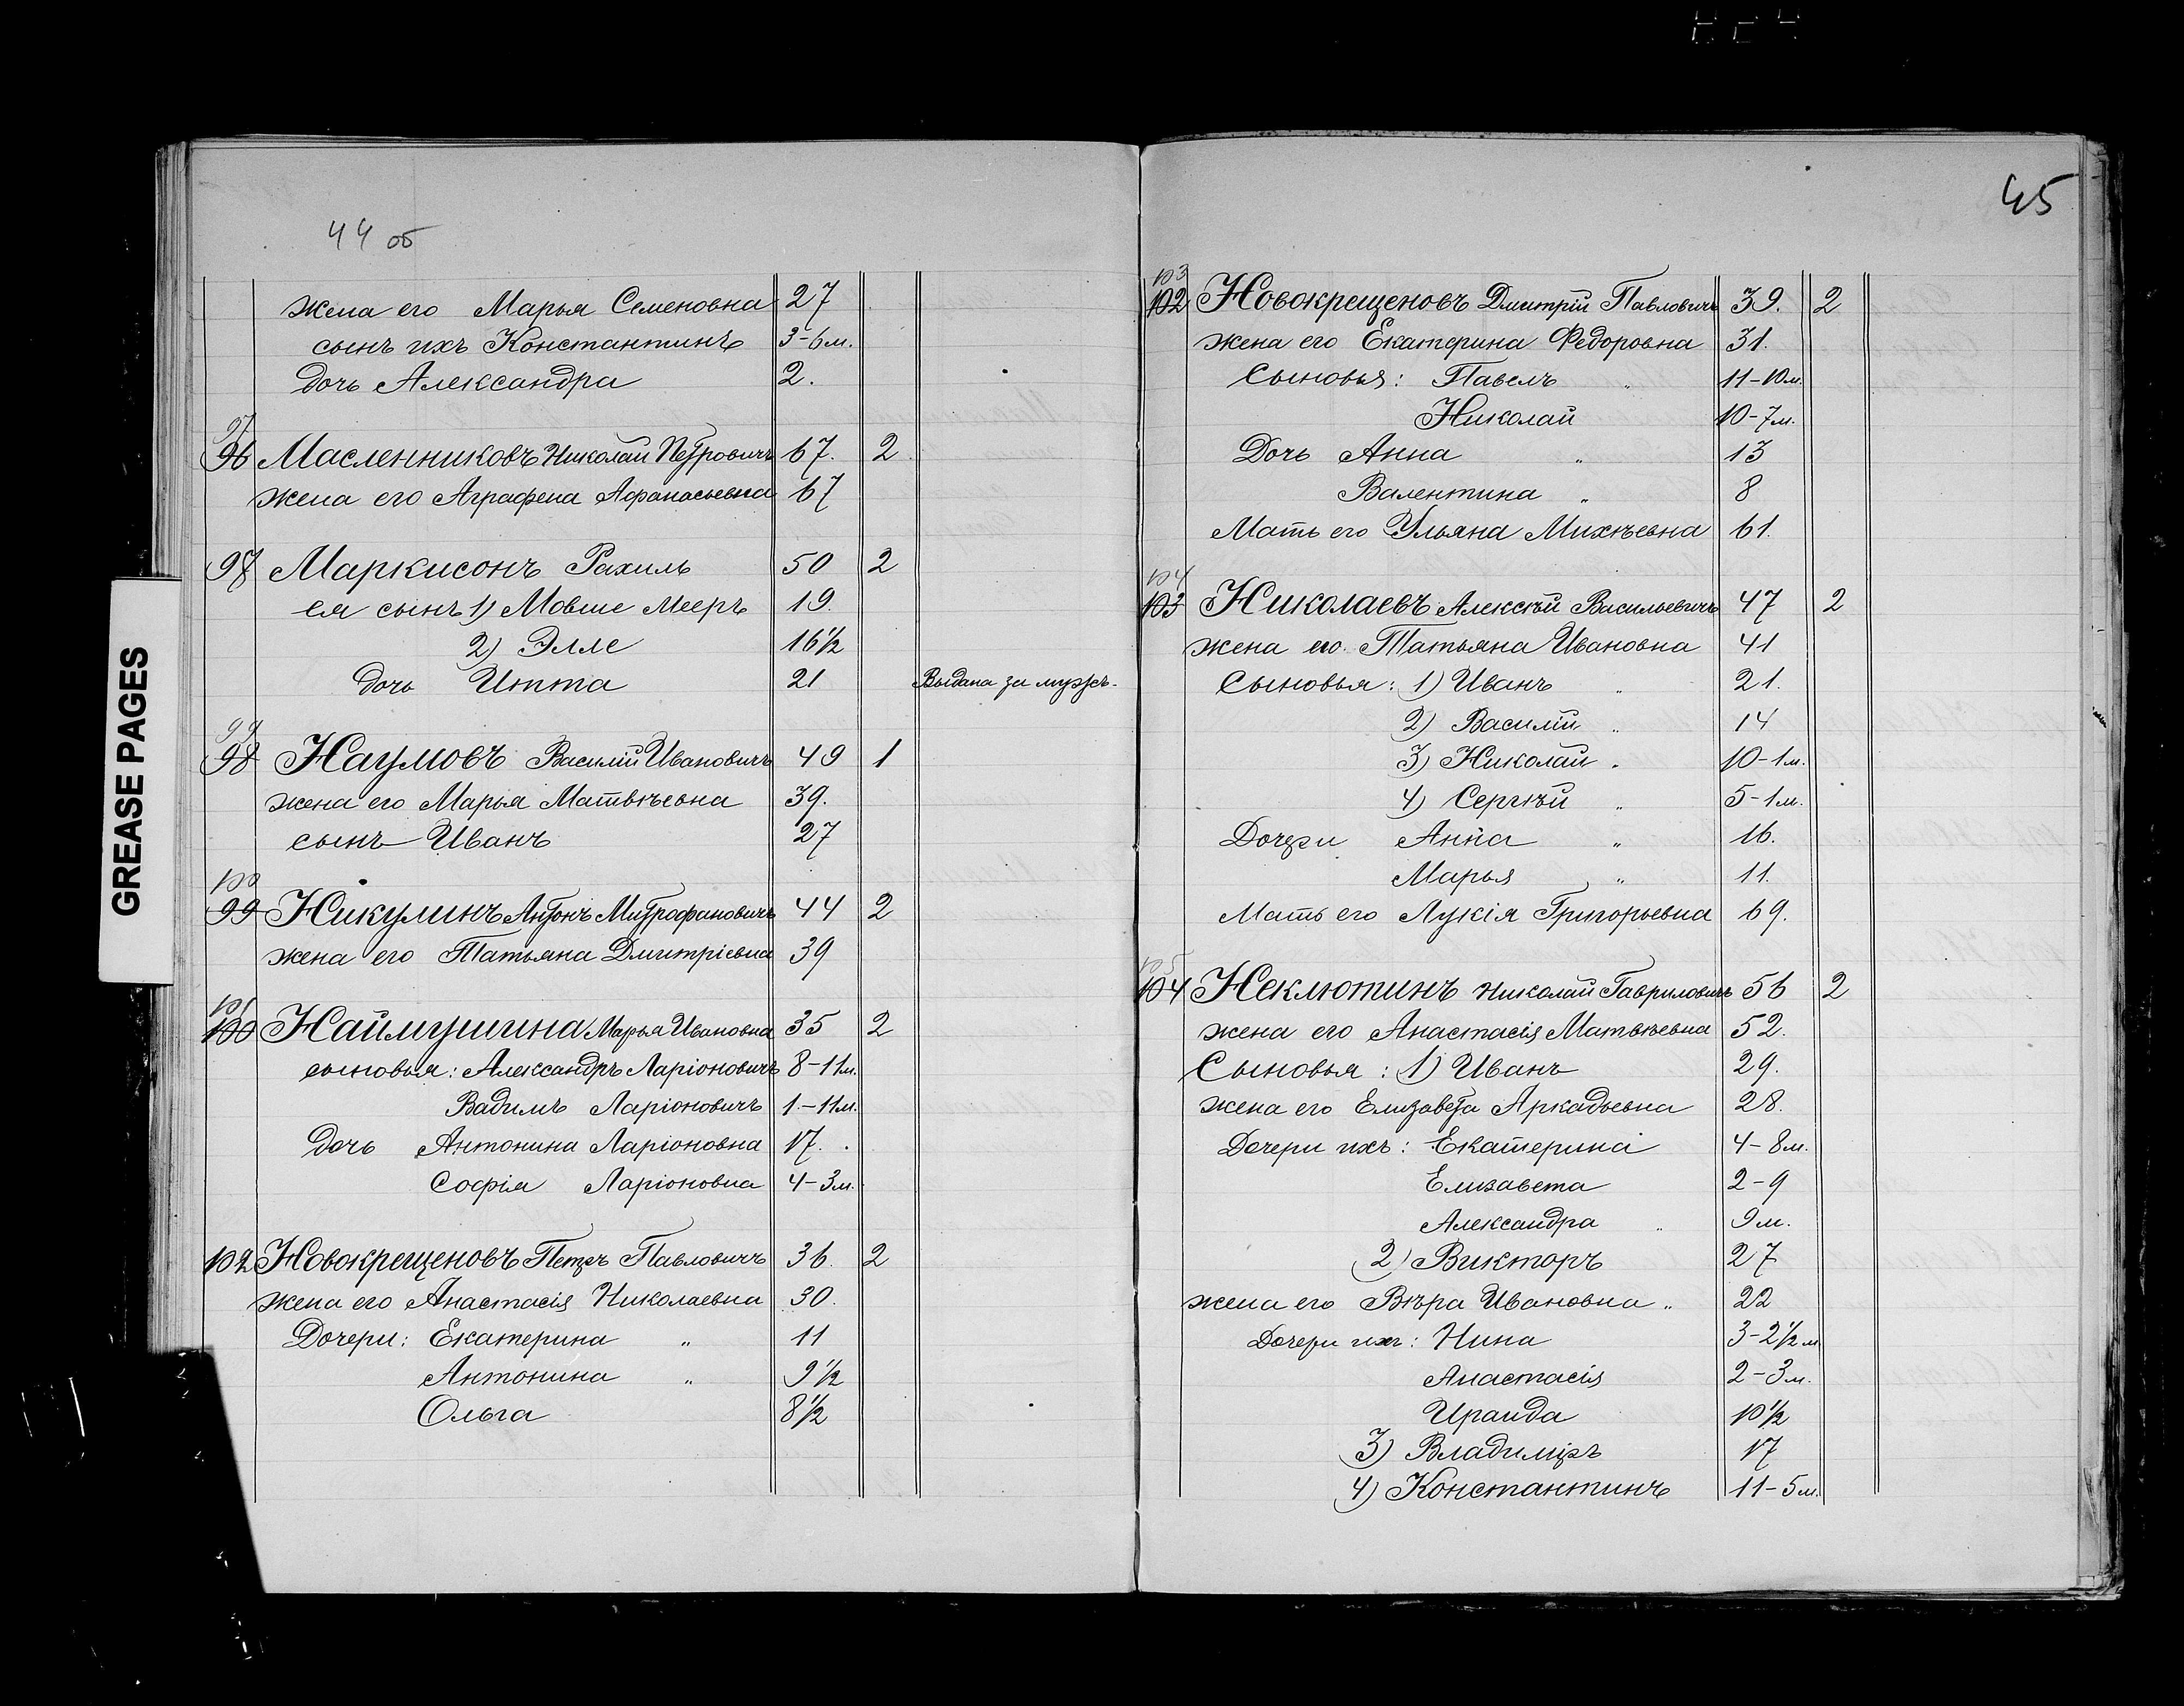 44 об
жена его Марья Семеновна 27
сынъ ихъ Константинъ 3-6 м.
дочь Александра 2.
97
96 Масленниковъ Николай Петровичъ 67. 2
жена его Аграфена Афанасьевна 67
98 Маркисонъ Рахиль 50 2
ея сынъ 1) Мовше Мееръ 19.
2) Элле 16 1/2
дочь Итта 21 Выдана за мужъ.
99
98 Наумовъ Василій Ивановичъ 49 1
жена его Марья Матвѣевна 39.
сынъ Иванъ 27
100
99 Никулинъ Антонъ Митрофановичъ 44 2
жена его Татьяна Дмитріевна 39
101
100 Наймушина Марья Ивановна 35 2
сыновья: Александръ Ларіоновичъ 8-11 м.
Вадимъ Ларіоновичъ 1.-11 м.
дочь Антонина Ларіоновна 17.
Софія Ларіоновна 4-3 м.
102 Новокрещеновъ Петръ Павловичъ 36. 2
жена его Анастасія Николаевна 30.
Дочери: Екатерина " 11
Антонина " 9 1/2
Ольга 8 1/2
GREASE PAGES
45
103
102 Новокрещеновъ Дмитрій Павловичъ 39. 2
жена его Екатерина Федоровна 31.
Сыновья: Павелъ " 11-10 м.
Николай 10-7 м.
Дочь Анна " 13
Валентина " 8
Мать его Ульяна Михѣевна 61.
104
103 Николаевъ Алексѣй Васильевичъ 47 2
жена его Татьяна Ивановна 41
Сыновья: 1) Иванъ " 21.
2) Василій " 14
3) Николай " 10-1 м.
4) Сергѣй " 5-1 м.
Дочери Анна " 16.
Марья " 11.
Мать его Лукія Григорьевна 69.
105
104 Неклютинъ Николай Гавриловичъ 56 2
жена его Анастасія Матвѣевна 52.
Сыновья: 1) Иванъ 29.
жена его Елизавета Аркадьевна 28.
Дочери ихъ: Екатерина 4-8 м.
Елизавета 2-9
Александра " 9 м.
2) Викторъ 27
жена его Вѣра Ивановна " 22
Дочери ихъ: Нина 3-2 1/2 м
Анастасія 2-3 м.
Ираида 10 1/2
3) Владиміръ 17
4) Константинъ 11-5 м.